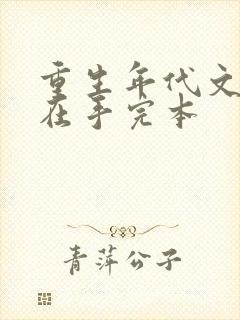 重生年代文
在手完本
青萍公子